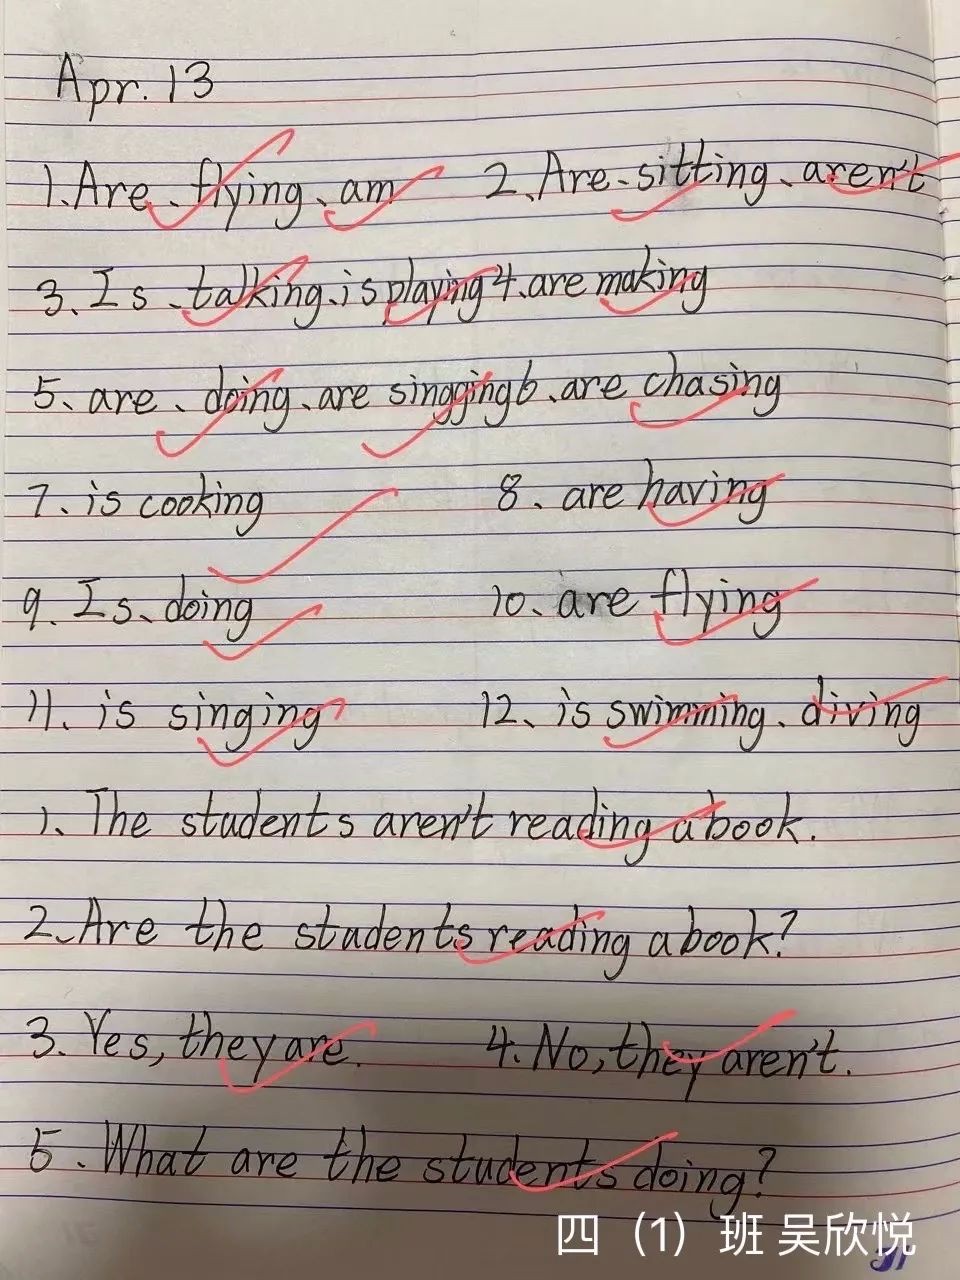 Apr. 13
1. Are、flying、am 2、Are、sitting、aren't
3. Is、talking、is playing 4、are making
5、are、doing、are singging 6、are chasing
7、is cooking 8、are having
9、Is、doing 10、are flying
11、is singing 12、is swimming、diving
1、The students aren't reading a book.
2、Are the students reading a book?
3. Yes, they are. 4. No, they aren't.
5. What are the students doing?
四（1）班 吴欣悦